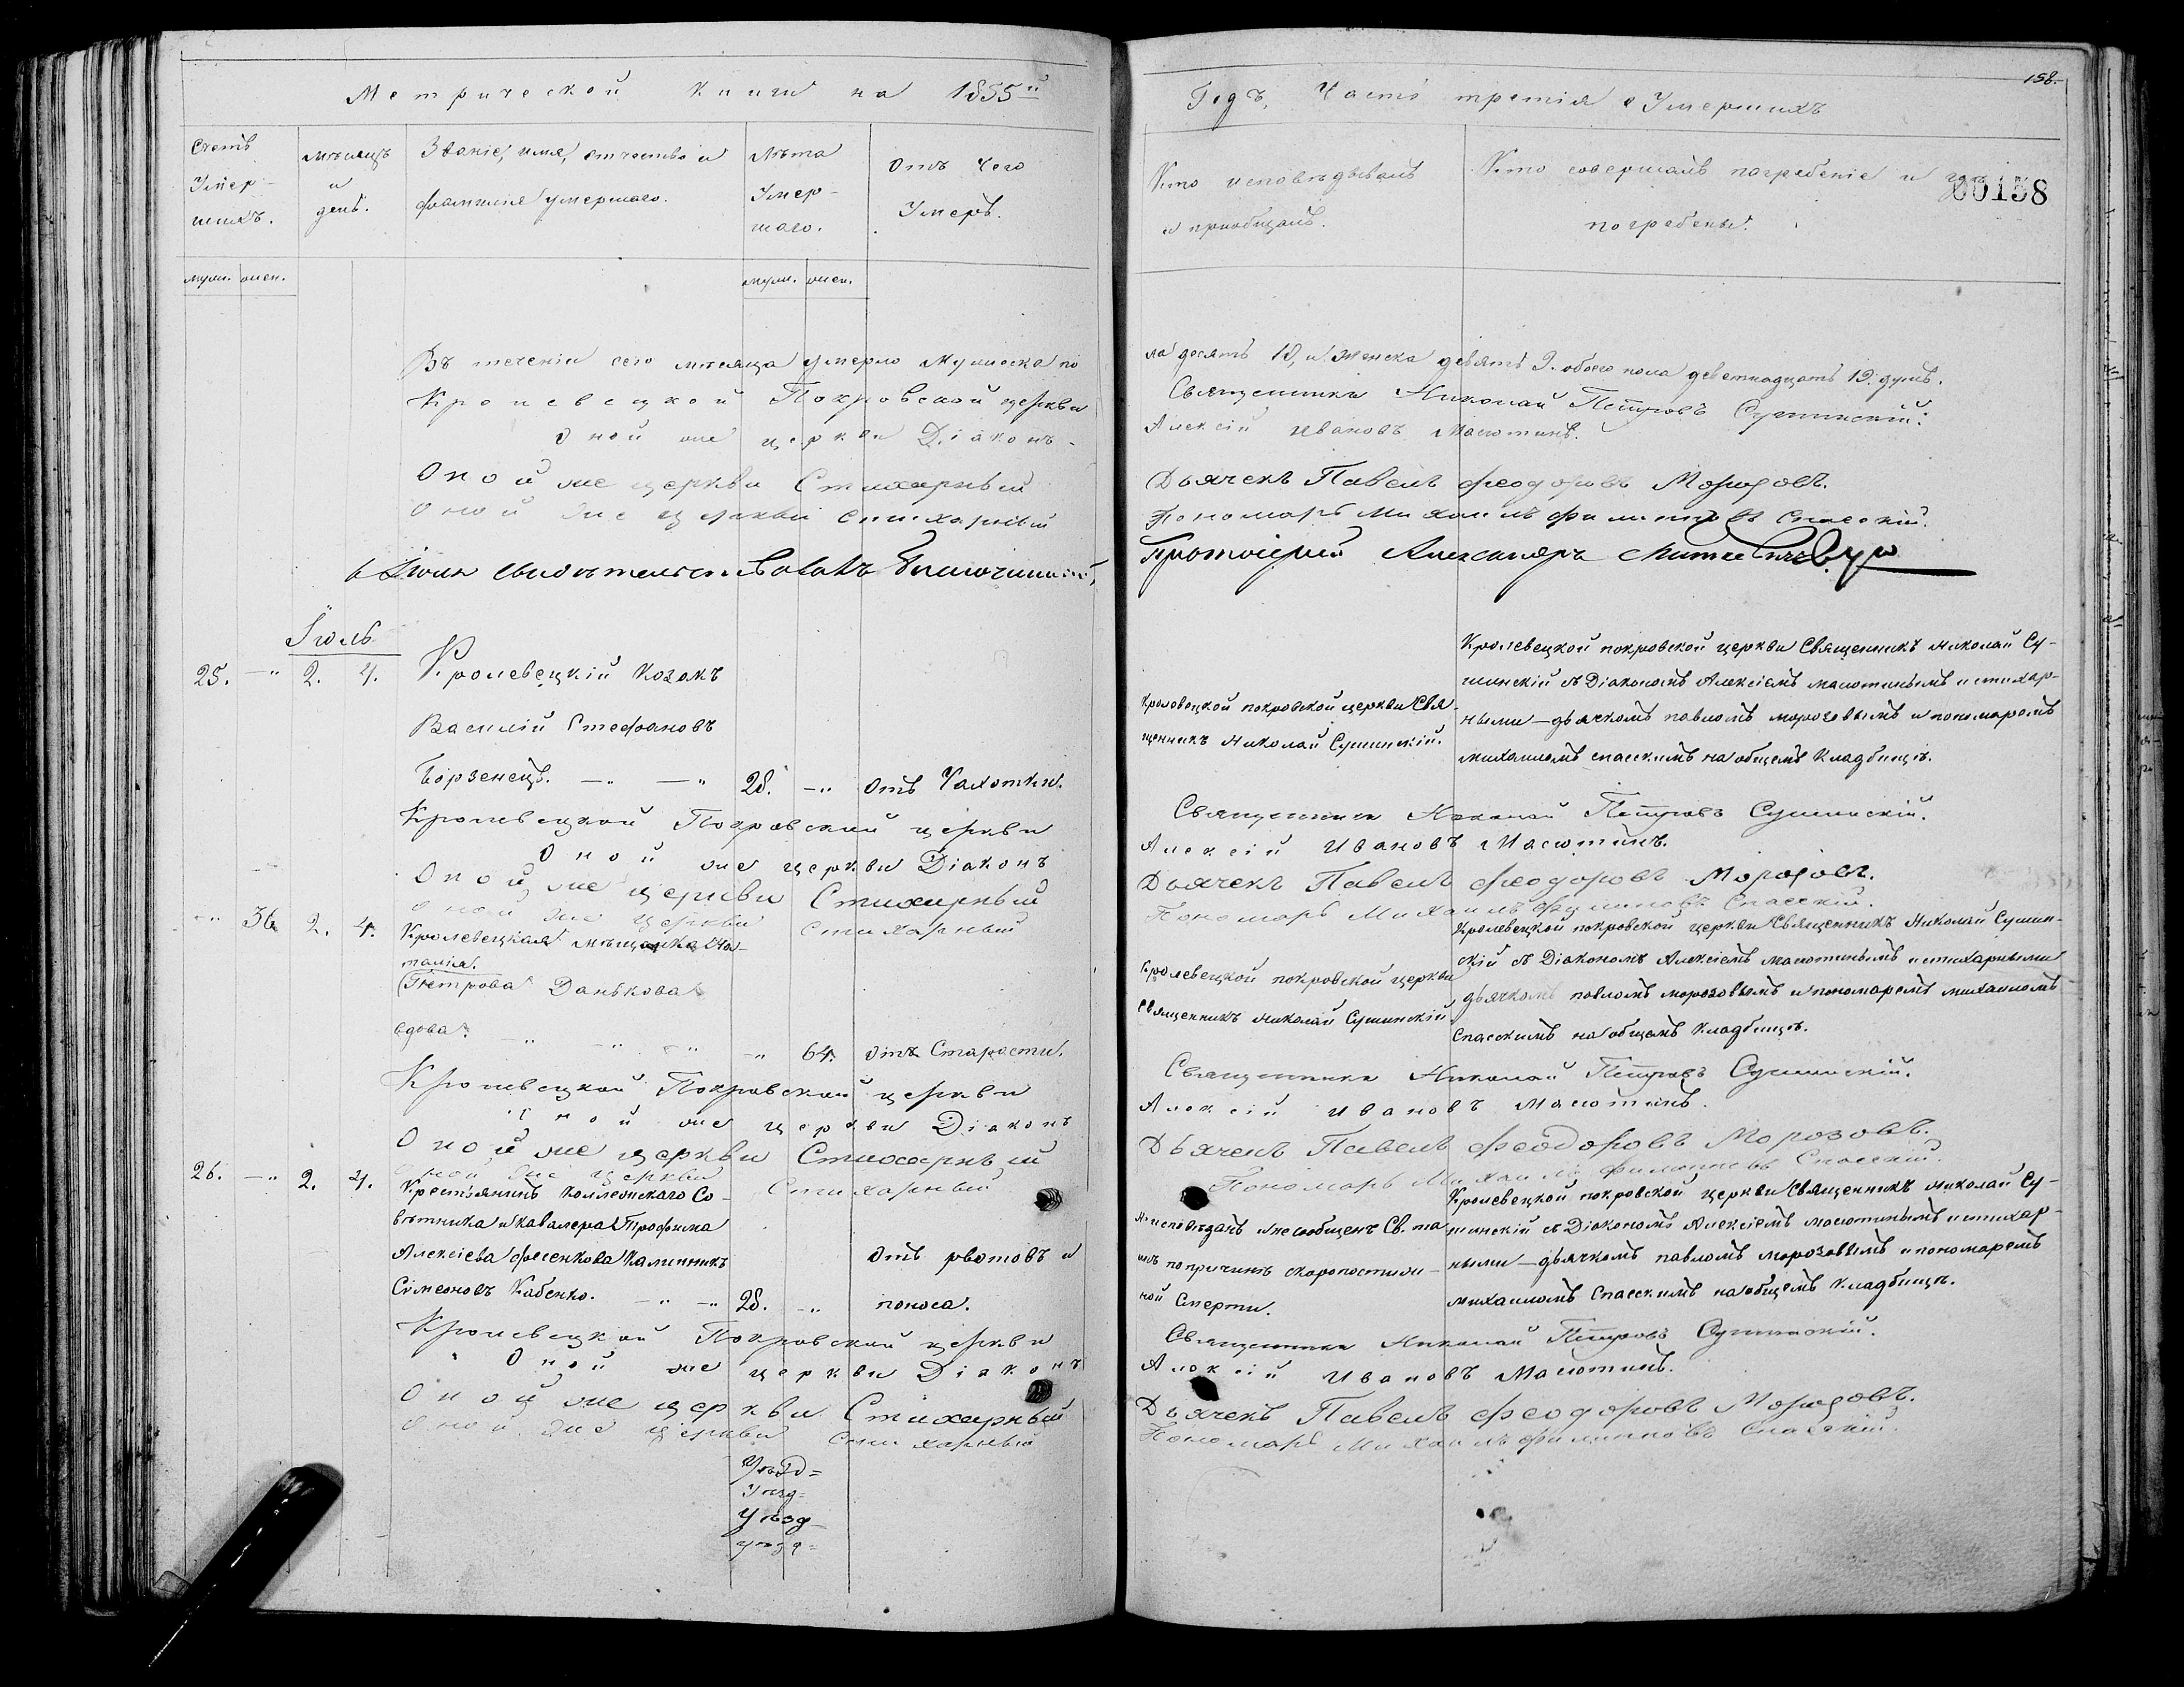 Метрической Книги на 1855й
Счетъ Умер-шихъ.
мѣсяцъ и день.
Званіе, имя, отчество и фамилія умершаго.
Лѣта Умер-шаго.
Отъ чего Умеръ.
муж. жен.
муж. жен.
Въ теченіи сего мѣсяца умерло Мужеска по
Кролевецкой Покровской церкви
Оной же церкви Діаконъ
Оной же церкви Стихарный
Оной же церкви стихарный
Іюль
25. — 2. 4. Кролевецкій Козакъ
Василій Стефановъ
Борзенецъ. — — 28. — Отъ Чахотки.
Кролевецкой Покровской церкви
Оной же церкви Діаконъ
Оной же церкви Стихарный
Оной же церкви стихарный
— 36 2. 4. Кролевецкая мѣщанка На-
талія
Петрова Данькова
вдова. — — — 64. Отъ Старости.
Кролевецкой Покровской церкви
Оной же церкви Діаконъ
Оной же церкви Стихарный
Оной же церкви Стихарный
26. — 2. 4. Крестьянинъ Коллежскаго Со-
вѣтника и Кавалера Трофима
Алексіева Фесенкова Калинникъ
Симеоновъ Кабенко. — — 28. — Отъ рвотовъ и
поноса.
Кролевецкой Покровской церкви
Оной же церкви Діаконъ
Оной же церкви Стихарный
Оной же церкви Стихарный
Уѣзд=
Уѣзд=
Уѣзд
уѣзд=
158.
Годъ, Часть третія о Умершихъ
Кто исповѣдывалъ и пріобщалъ.
Кто совершалъ погребеніе и гдѣ погребены.
00158
ла десять 10, и Женска девять 9. обоего пола деветнадцать 19. душъ.
Священникъ Николай Петровъ Сушинскій.
Алексій Ивановъ Масютинъ.
Дьячекъ Павелъ Феодоровъ Морозовъ.
Пономарь Михаилъ Филипповъ Спасскій.
Протоіерей Александръ
Кролевецкой покровской церкви Свя-
щенникъ Николай Сушинскій.
Кролевецкой покровской церкви Священникъ Николай Су-
шинскій съ Діакономъ Алексіемъ масютинымъ и стихар-
ными—дьячкомъ павломъ морозовымъ и пономаремъ
михаиломъ спасскимъ на общемъ Кладбищѣ.
Священникъ Николай Петровъ Сушинскій.
Алексій Ивановъ Масютинъ.
Дьячекъ Павелъ Феодоровъ Морозовъ.
Пономарь Михаилъ Филипповъ Спасскій.
Кролевецкой покровской церкви
Священникъ Николай Сушинскій
Кролевецкой покровской церкви Священникъ Николай Сушин-
скій съ Діакономъ Алексіемъ масютинымъ и стихарными
дьячкомъ павломъ морозовымъ и пономаремъ михаиломъ
Спасскимъ на общемъ Кладбищѣ.
Священникъ Николай Петровъ Сушинскій.
Алексій Ивановъ Масютинъ.
Дьячекъ Павелъ Феодоровъ Морозовъ.
Пономарь Михаилъ Филипповъ Спасскій.
Неисповѣданъ и несообщенъ Св. та
инъ по причинѣ скоропостиж-
ной Смерти.
Кролевецкой покровской церкви Священникъ николай Су-
шинскій съ Діакономъ Алексіемъ масютинымъ и стихар-
ными—дьячкомъ павломъ морозовымъ и пономаремъ
михаиломъ Спасскимъ на общемъ Кладбищѣ.
Священникъ Николай Петровъ Сушинскій.
Алексій Ивановъ Масютинъ.
Дьячекъ Павелъ Феодоровъ Морозовъ.
Пономарь Михаилъ Филипповъ Спасскій.